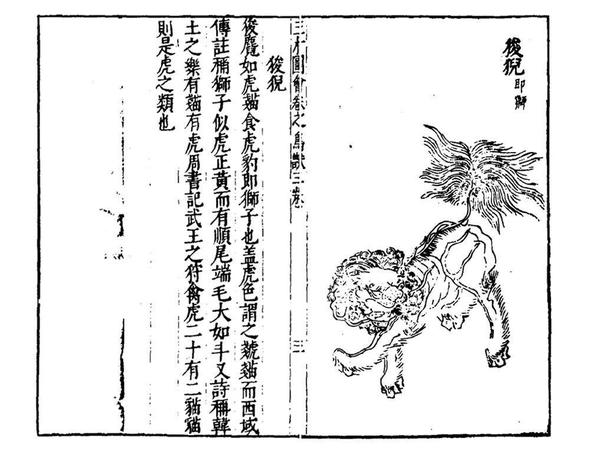 狻猊 即獅
三才圖會卷之鳥獸三卷 三
狻猊
狻麑如虎貓食虎豹即獅子也盖虎色謂之虦貓而西域
傳註稱獅子似虎正黃而有順尾端毛大如斗又詩稱韓
土之樂有貓有虎周書記武王之狩禽虎二十有二貓貓
則是虎之類也